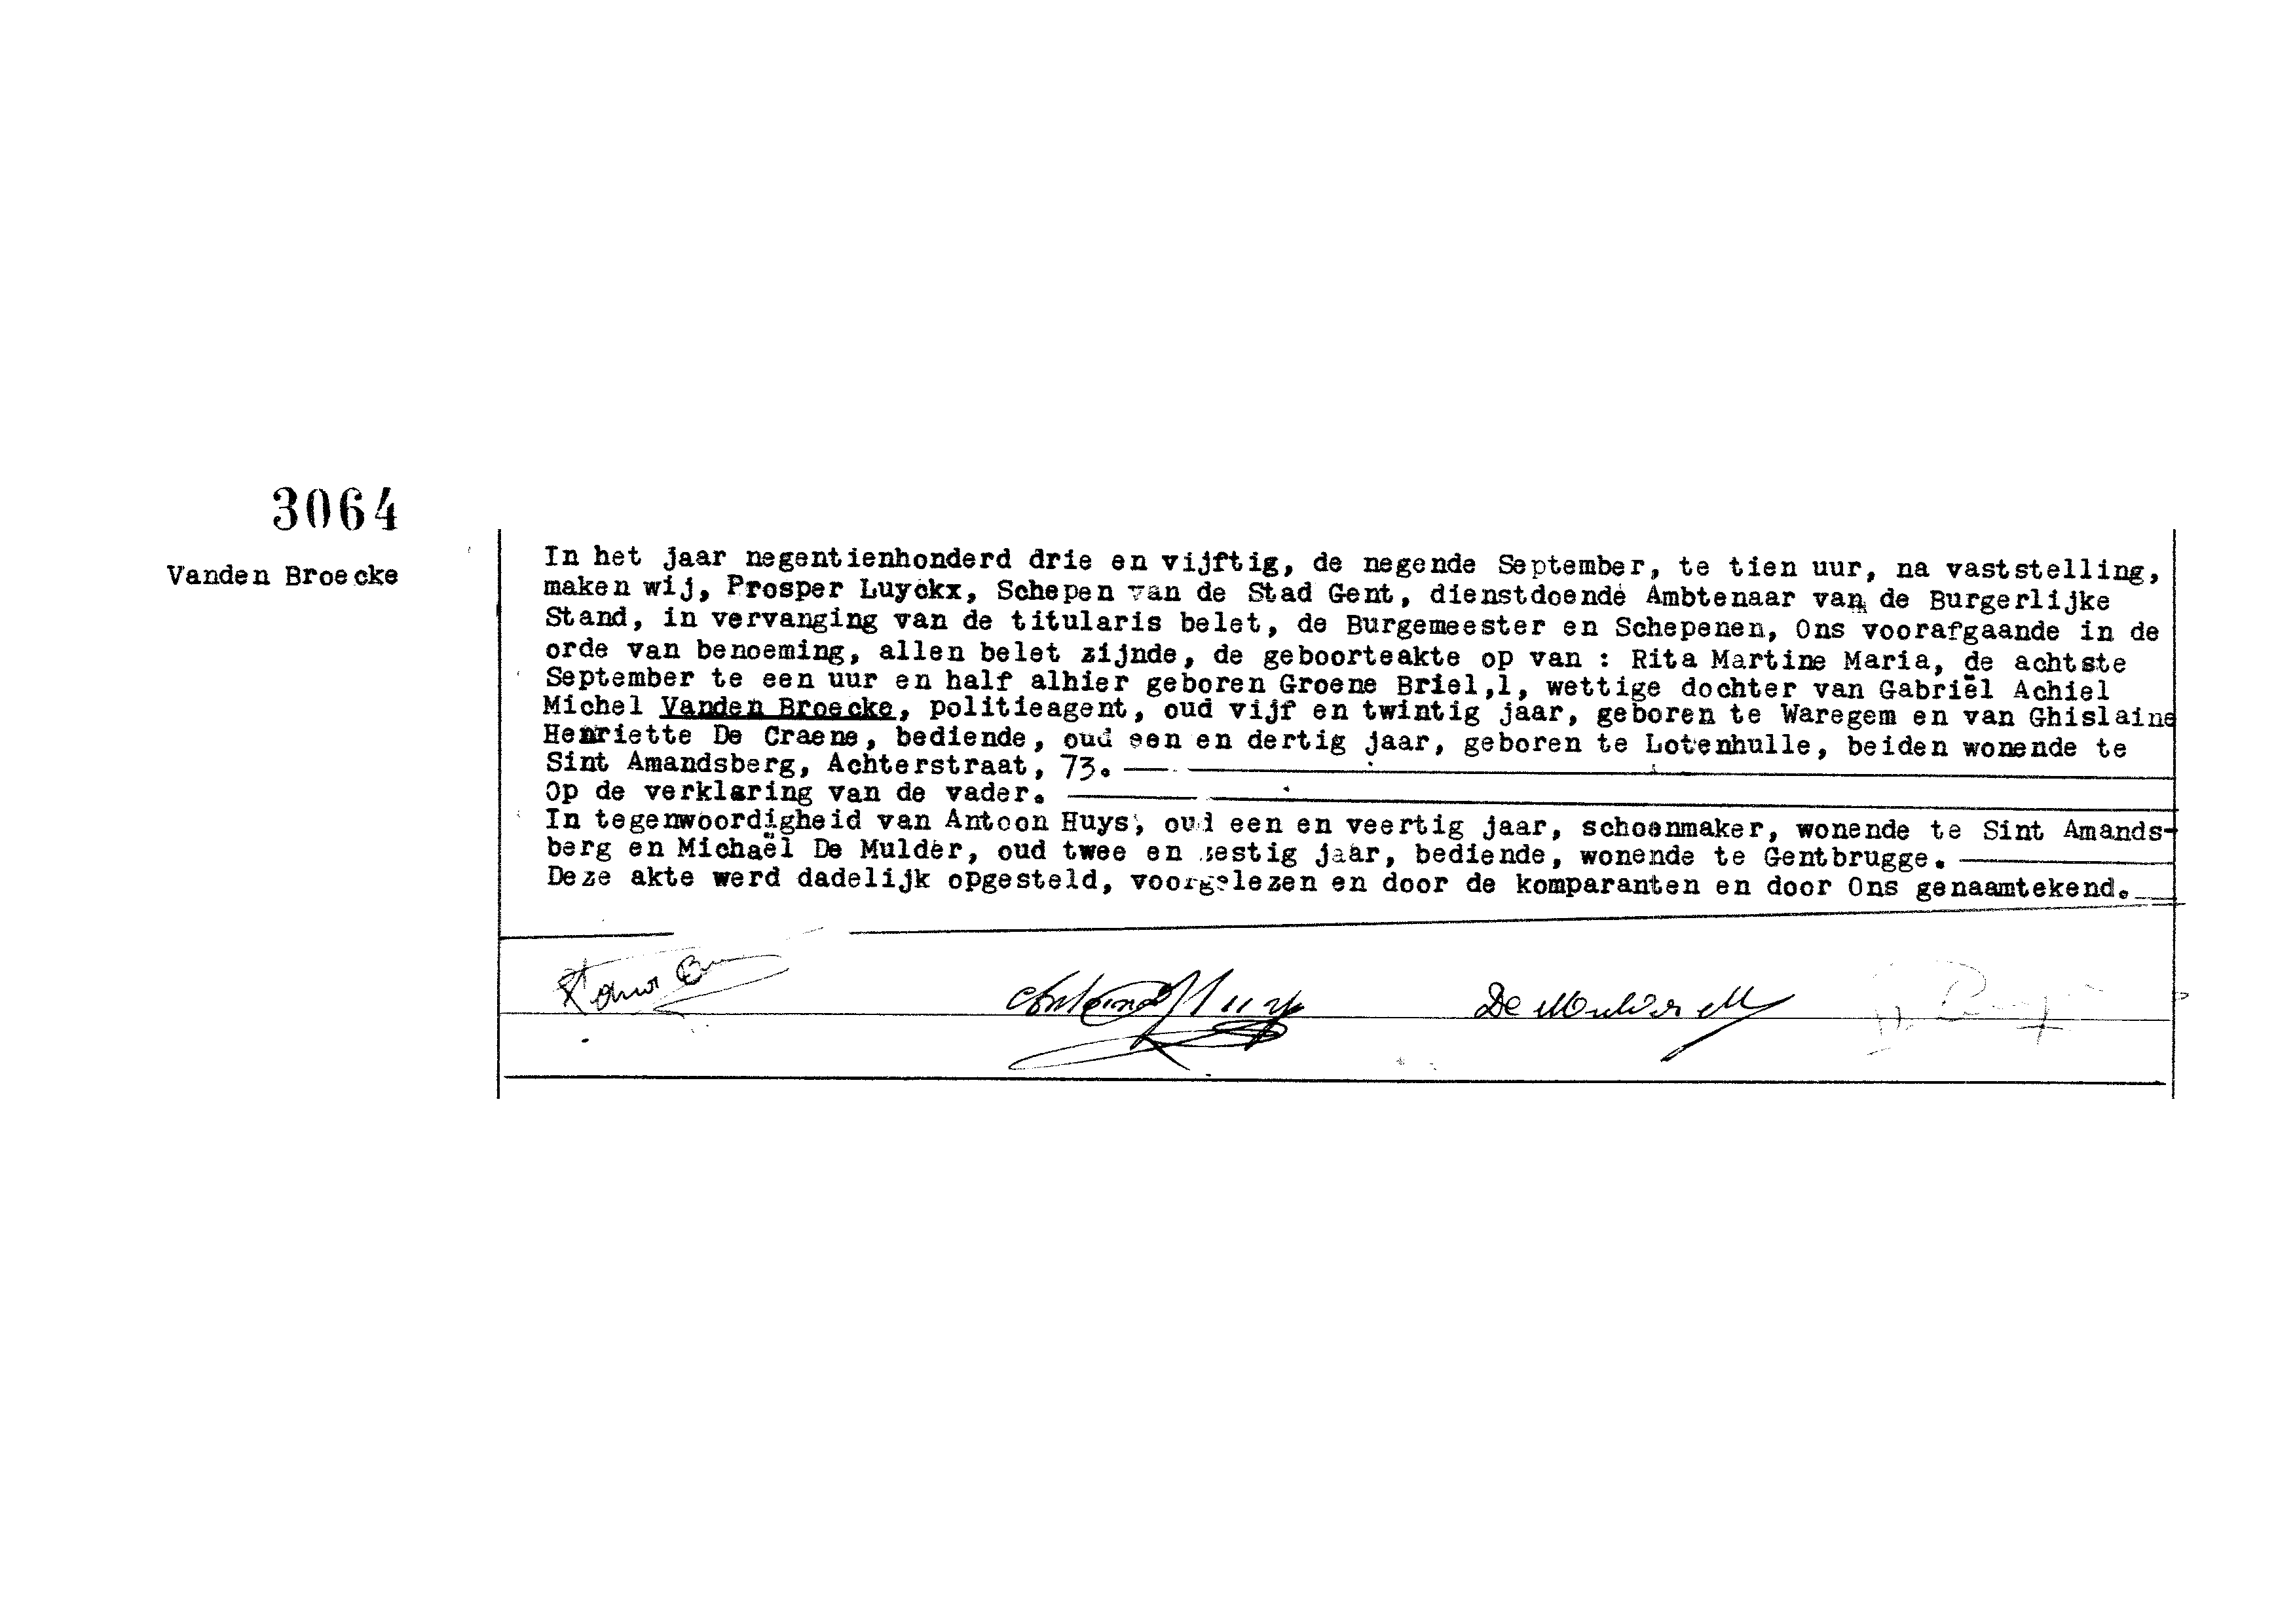 3064
Vanden Broecke
In het jaar negentienhonderd drie en vijftig, de negende September, te tien uur, na vaststelling,
maken wij, Prosper Luyckx, Schepen van de Stad Gent, dienstdoende Ambtenaar van de Burgerlijke
Stand, in vervanging van de titularis belet, de Burgemeester en Schepenen, Ons voorafgaande in de
orde van benoeming, allen belet zijnde, de geboorteakte op van : Rita Martine Maria, de achtste
September te een uur en half alhier geboren Groene Briel,1, wettige dochter van Gabriël Achiel
Michel Vanden Broecke, politieagent, oud vijf en twintig jaar, geboren te Waregem en van Ghislaine
Henriette De Craene, bediende, oud een en dertig jaar, geboren te Lotenhulle, beiden wonende te
Sint Amandsberg, Achterstraat, 73.
Op de verklaring van de vader.
In tegenwoordigheid van Antoon Huys, oud een en veertig jaar, schoenmaker, wonende te Sint Amands-
berg en Michaël De Mulder, oud twee en zestig jaar, bediende, wonende te Gentbrugge.
Deze akte werd dadelijk opgesteld, voorgelezen en door de komparanten en door Ons genaamtekend.
De Mulder M